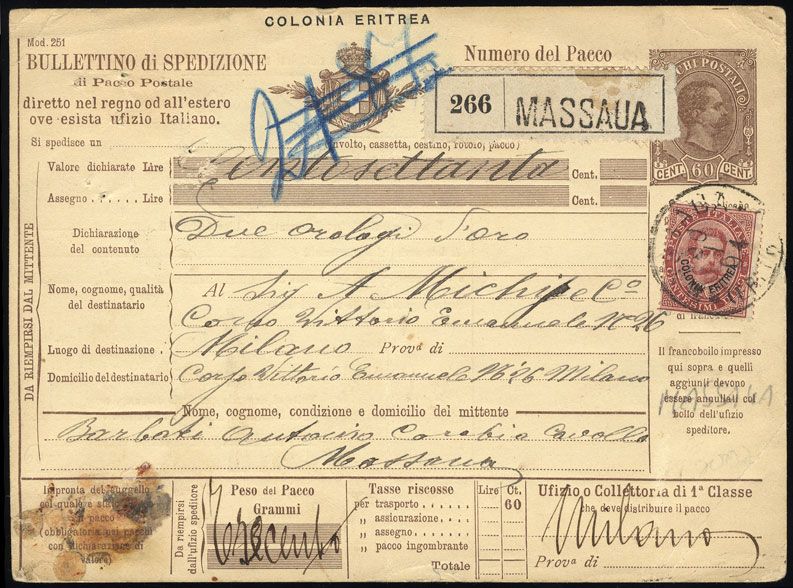 COLONIA ERITREA
Mod. 251
BULLETTINO di SPEDIZIONE
di Pacco Postale
diretto nel regno od all'estero
ove esista ufizio Italiano.
Numero del Pacco
266 MASSAUA
CHI POSTALI
CENT. 60 CENT.
Si spedisce un (involto, cassetta, cestino, rotolo, pacco)
Valore dichiarato Lire Centosettanta Cent.
Assegno Lire Cent.
Dichiarazione
del contenuto
Due orologi d'oro
COLONIA ERITREA
Nome, cognome, qualità
del destinatario
Al Sig A Michip e Co
Corso Vittorio Emanuele N. 26
Luogo di destinazione Milano Prov.a di
Domicilio del destinatario Corso Vittorio Emanuele N. 26 Milano
DA RIEMPIRSI DAL MITTENTE
Il francobollo impresso
qui sopra e quelli
aggiunti devono
essere annullati col
bollo dell'ufizio
speditore.
MASSAUA
Nome, cognome, condizione e domicilio del mittente
Barbati Antonio
Massaua
Impronta del suggello
col quale
il pacco
(obbligatoria pei pacchi
con dichiarazione di
valore)
Da riempirsi
dall'ufizio speditore
Peso del Pacco
Grammi
Trecento
Tasse riscosse Lire Ct.
per trasporto 60
" assicurazione
" assegno
" pacco ingombrante
Totale
Ufizio o Collettoria di 1a Classe
che deve distribuire il pacco
Milano
Prov.a di